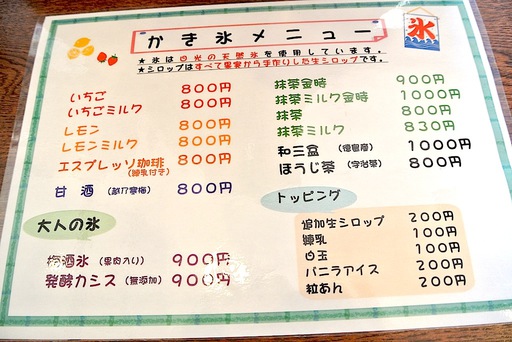 かき氷メニュー
氷
★氷は日光の天然氷を使用しています。
★シロップはすべて果実から手作りした生シロップです。
いちご 800円
いちごミルク 800円
レモン 800円
レモンミルク 800円
エスプレッソ珈琲 800円
(練乳付き)
甘酒 (越乃寒梅) 800円
大人の氷
梅酒氷 (果肉入り) 900円
発酵カシス (無添加) 900円
抹茶金時 900円
抹茶ミルク金時 1000円
抹茶 800円
抹茶ミルク 830円
和三盆 (徳島産) 1000円
ほうじ茶 (宇治茶) 800円
トッピング
追加生シロップ 200円
練乳 100円
白玉 100円
バニラアイス 200円
粒あん 200円